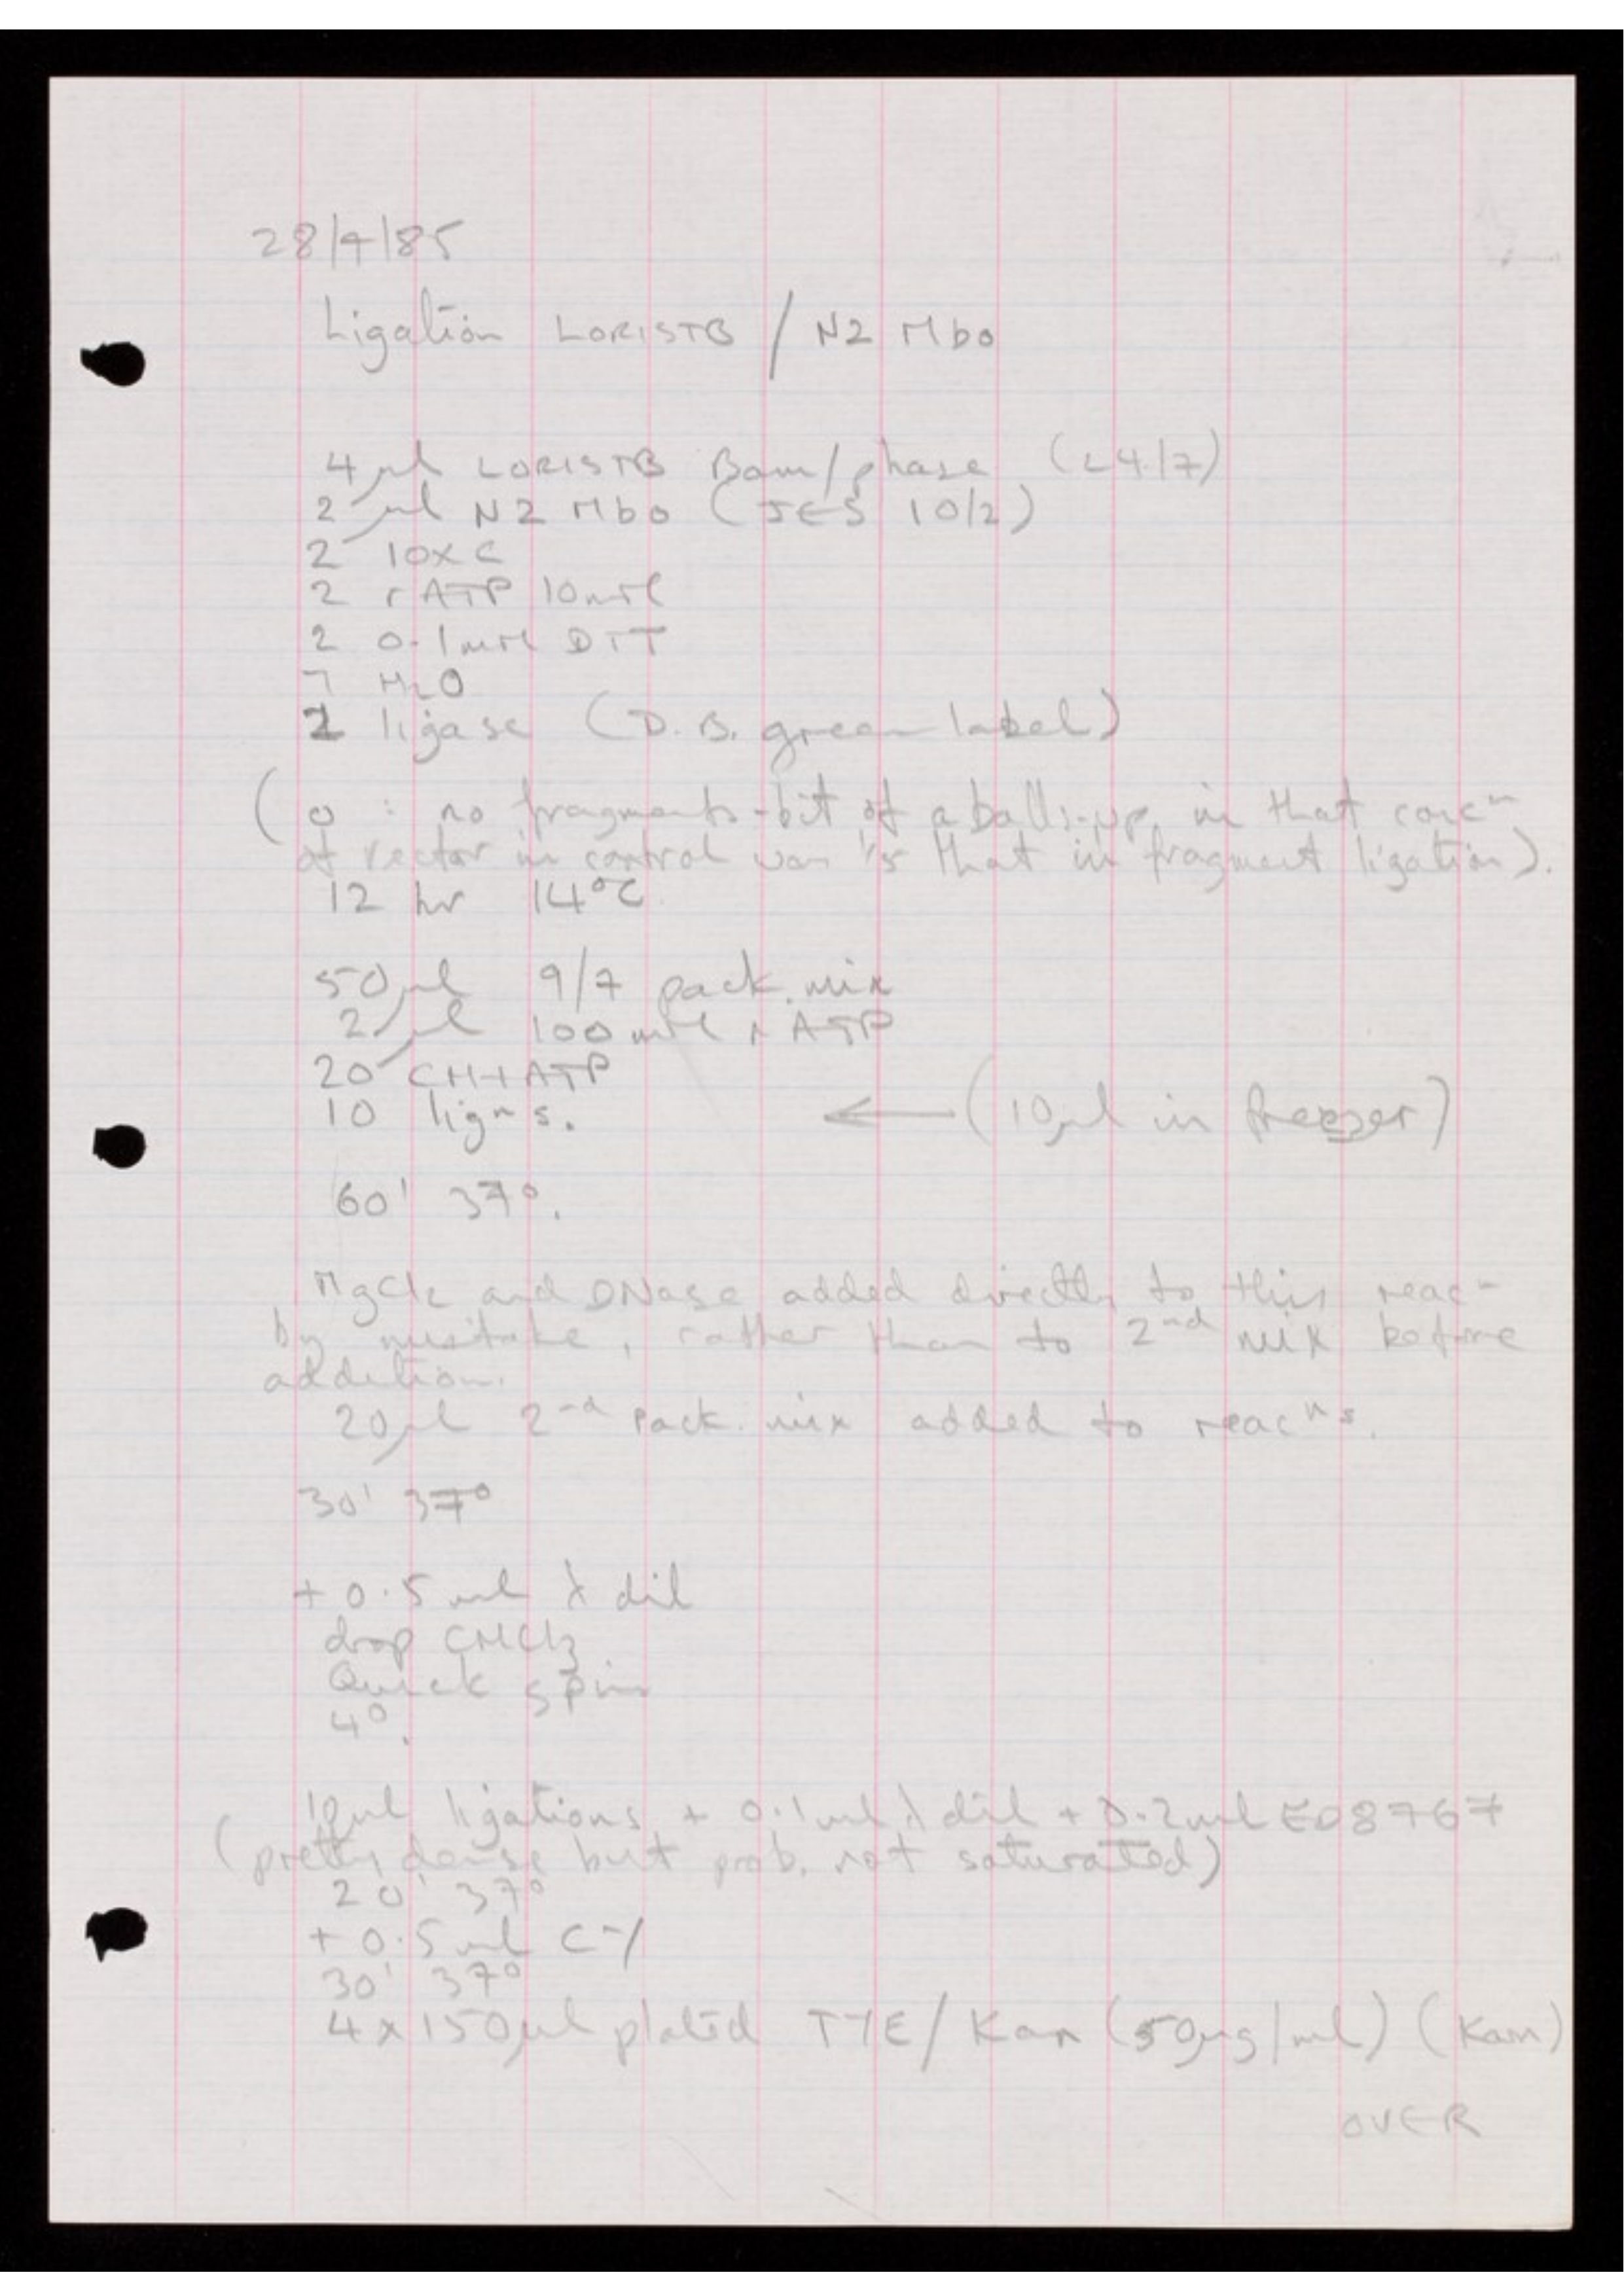 28/7/85
Ligation LORISTB / N2 Mbo
4 μl LORISTB Bam/phase (24/7)
2 μl N2 Mbo (JES 10/2)
2 10x C
2 rATP 10mM
2 0.1mM DTT
7 H2O
2 ligase (D.B. green label)
(0 : no fragments - bit of a balls-up, in that concn
of vector in control was 1/5 that in fragment ligation).
12 hr 14°C
50 μl 9/7 pack. mix
2 μl 100 mM rATP
20 CH+ATP
10 lign s. ← (10μl in freezer)
60' 37°.
MgCl2 and DNase added directly to this reacn
by mistake, rather than to 2nd mix before
addition.
20μl 2nd pack. mix added to reacns.
30' 37°
+ 0.5 ml λ dil
drop CHCl3
Quick spin
4°.
10μl ligations + 0.1ml λ dil + 0.2ml ED8767
(pretty dense but prob. not saturated)
20' 37°
+ 0.5 ml CY
30' 37°
4 x 150μl plated TYE/Kan (50μg/ml) (Kam)
OVER